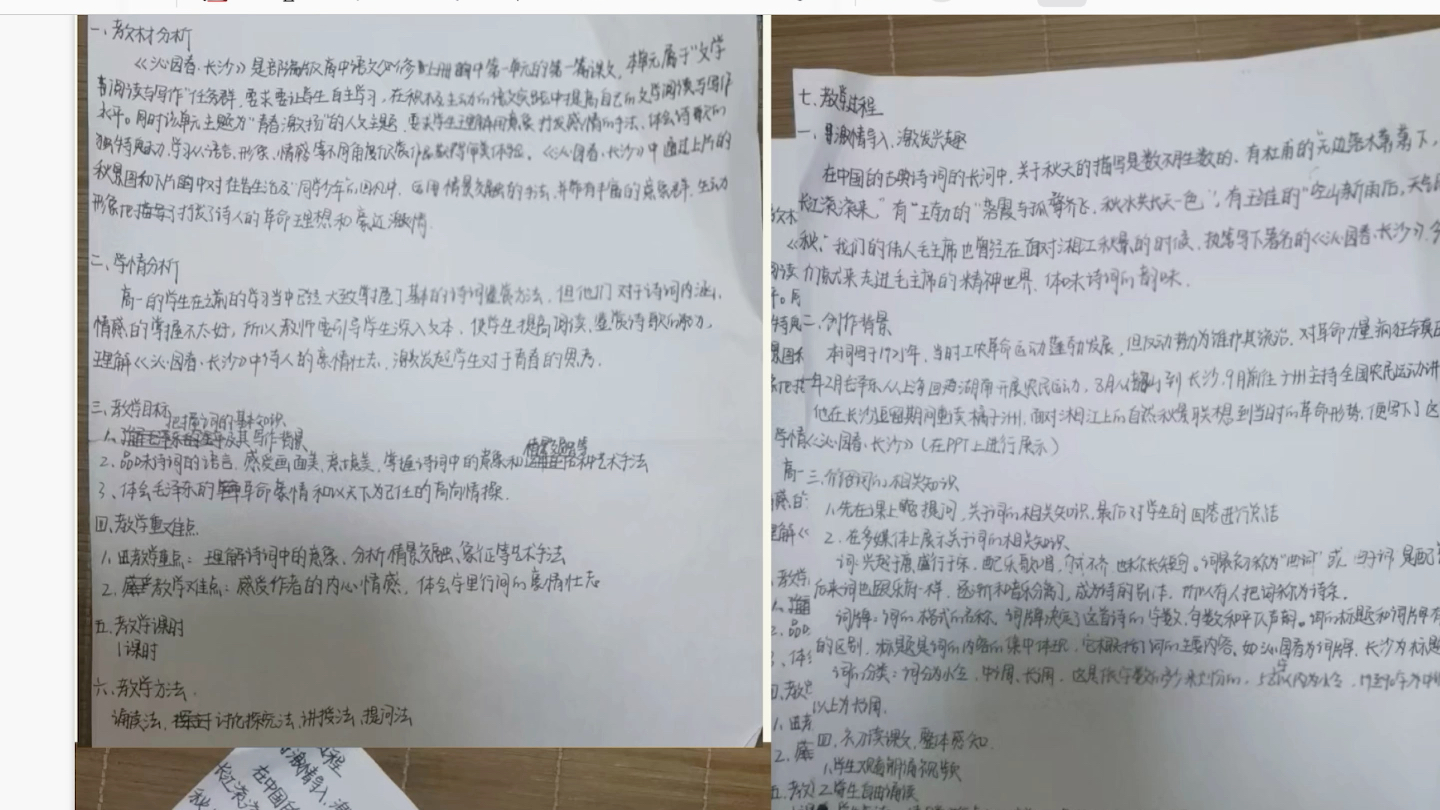 一、教材分析
《沁园春·长沙》是部编版高中语文必修上册中第一单元的第一篇课文，本单元属于“文学
阅读与写作”任务群，要求要让学生自主学习，在积极主动的语文实践中提高自己的文学阅读与写作
水平。同时该单元主题为“青春激扬”的人文主题，要求学生理解用意象抒发感情的手法，体会诗歌的
独特魅力，学习从语言、形象、情感等不同角度欣赏作品获得审美体验。《沁园春·长沙》中通过上片的
秋景图和下片中对往昔生活及“同学少年”的回忆，运用情景交融的手法，并带有丰富的意象群，生动
形象地抒发了诗人的革命理想和豪迈激情.
二、学情分析
高一的学生在之前的学习当中已经大致掌握了基本的诗词鉴赏方法，但他们对于诗词内涵，
情感的掌握不太好，所以教师要引导学生深入文本，使学生提高阅读、鉴赏诗歌的能力，
理解《沁园春·长沙》中诗人的豪情壮志，激发起学生对于青春的思考.
三、教学目标
把握词的基本知识
1、及其写作背景
2、品味诗词的语言，感受画面美，意境美，掌握诗词中的意象和情景交融等艺术手法
3、体会毛泽东的革命豪情和以天下为己任的高尚情操.
四、教学重难点
1、教学重点：理解诗词中的意象、分析情景交融、象征等艺术手法
2、教学难点：感受作者的内心情感，体会字里行间的豪情壮志
五、教学课时
1课时
六、教学方法.
诵读法、讨论探究法、讲授法、提问法
七、教学过程
一、激情导入，激发兴趣
在中国的古典诗词的长河中，关于秋天的描写是数不胜数的，有杜甫的“无边落木萧萧下，
长江滚滚来”有“王勃的“落霞与孤鹜齐飞，秋水共长天一色”，有王维的“空山新雨后，天气
秋”我们的伟人毛主席也曾经在面对湘江秋景的时候，执笔写下著名的《沁园春·长沙》，今
来走进毛主席的精神世界，体味诗词的韵味.
二、创作背景
本词写于1925年，当时工农革命运动蓬勃发展，但反动势力为维护其统治，对革命力量疯狂
年2月毛泽东从上海回到湖南开展农民运动，8月从韶山到长沙，9月前往广州主持全国农民运动讲
他在长沙逗留期间重读橘子洲，面对湘江上的自然秋景联想到当时的革命形势，便写下了这
《沁园春·长沙》（在PPT上进行展示）
三、介绍词的相关知识
1、先在课上提问，关于词的相关知识，最后对学生的回答进行总结
2、在多媒体上展示关于词的相关知识
词：兴起于隋，盛行于宋，配乐歌唱，句式不齐，也称长短句。词最初称为“曲词”或
后来词也跟乐府一样，逐渐和音乐分离了，成为诗的别体，所以有人把词称为诗余.
词牌：词的格式的名称，词牌决定了这首诗的字数，句数和平仄声韵。词的标题和词牌有
的区别，标题是词的内容的集中体现，它概括了词的主要内容，如沁园春为词牌，长沙为标题
词的分类：词分为小令，中调，长调。这是依字数的多少来划分的，58字以内为小令，
以上为长调.
四、初读课文，整体感知.
1、学生观看朗诵视频
2、学生自由诵读